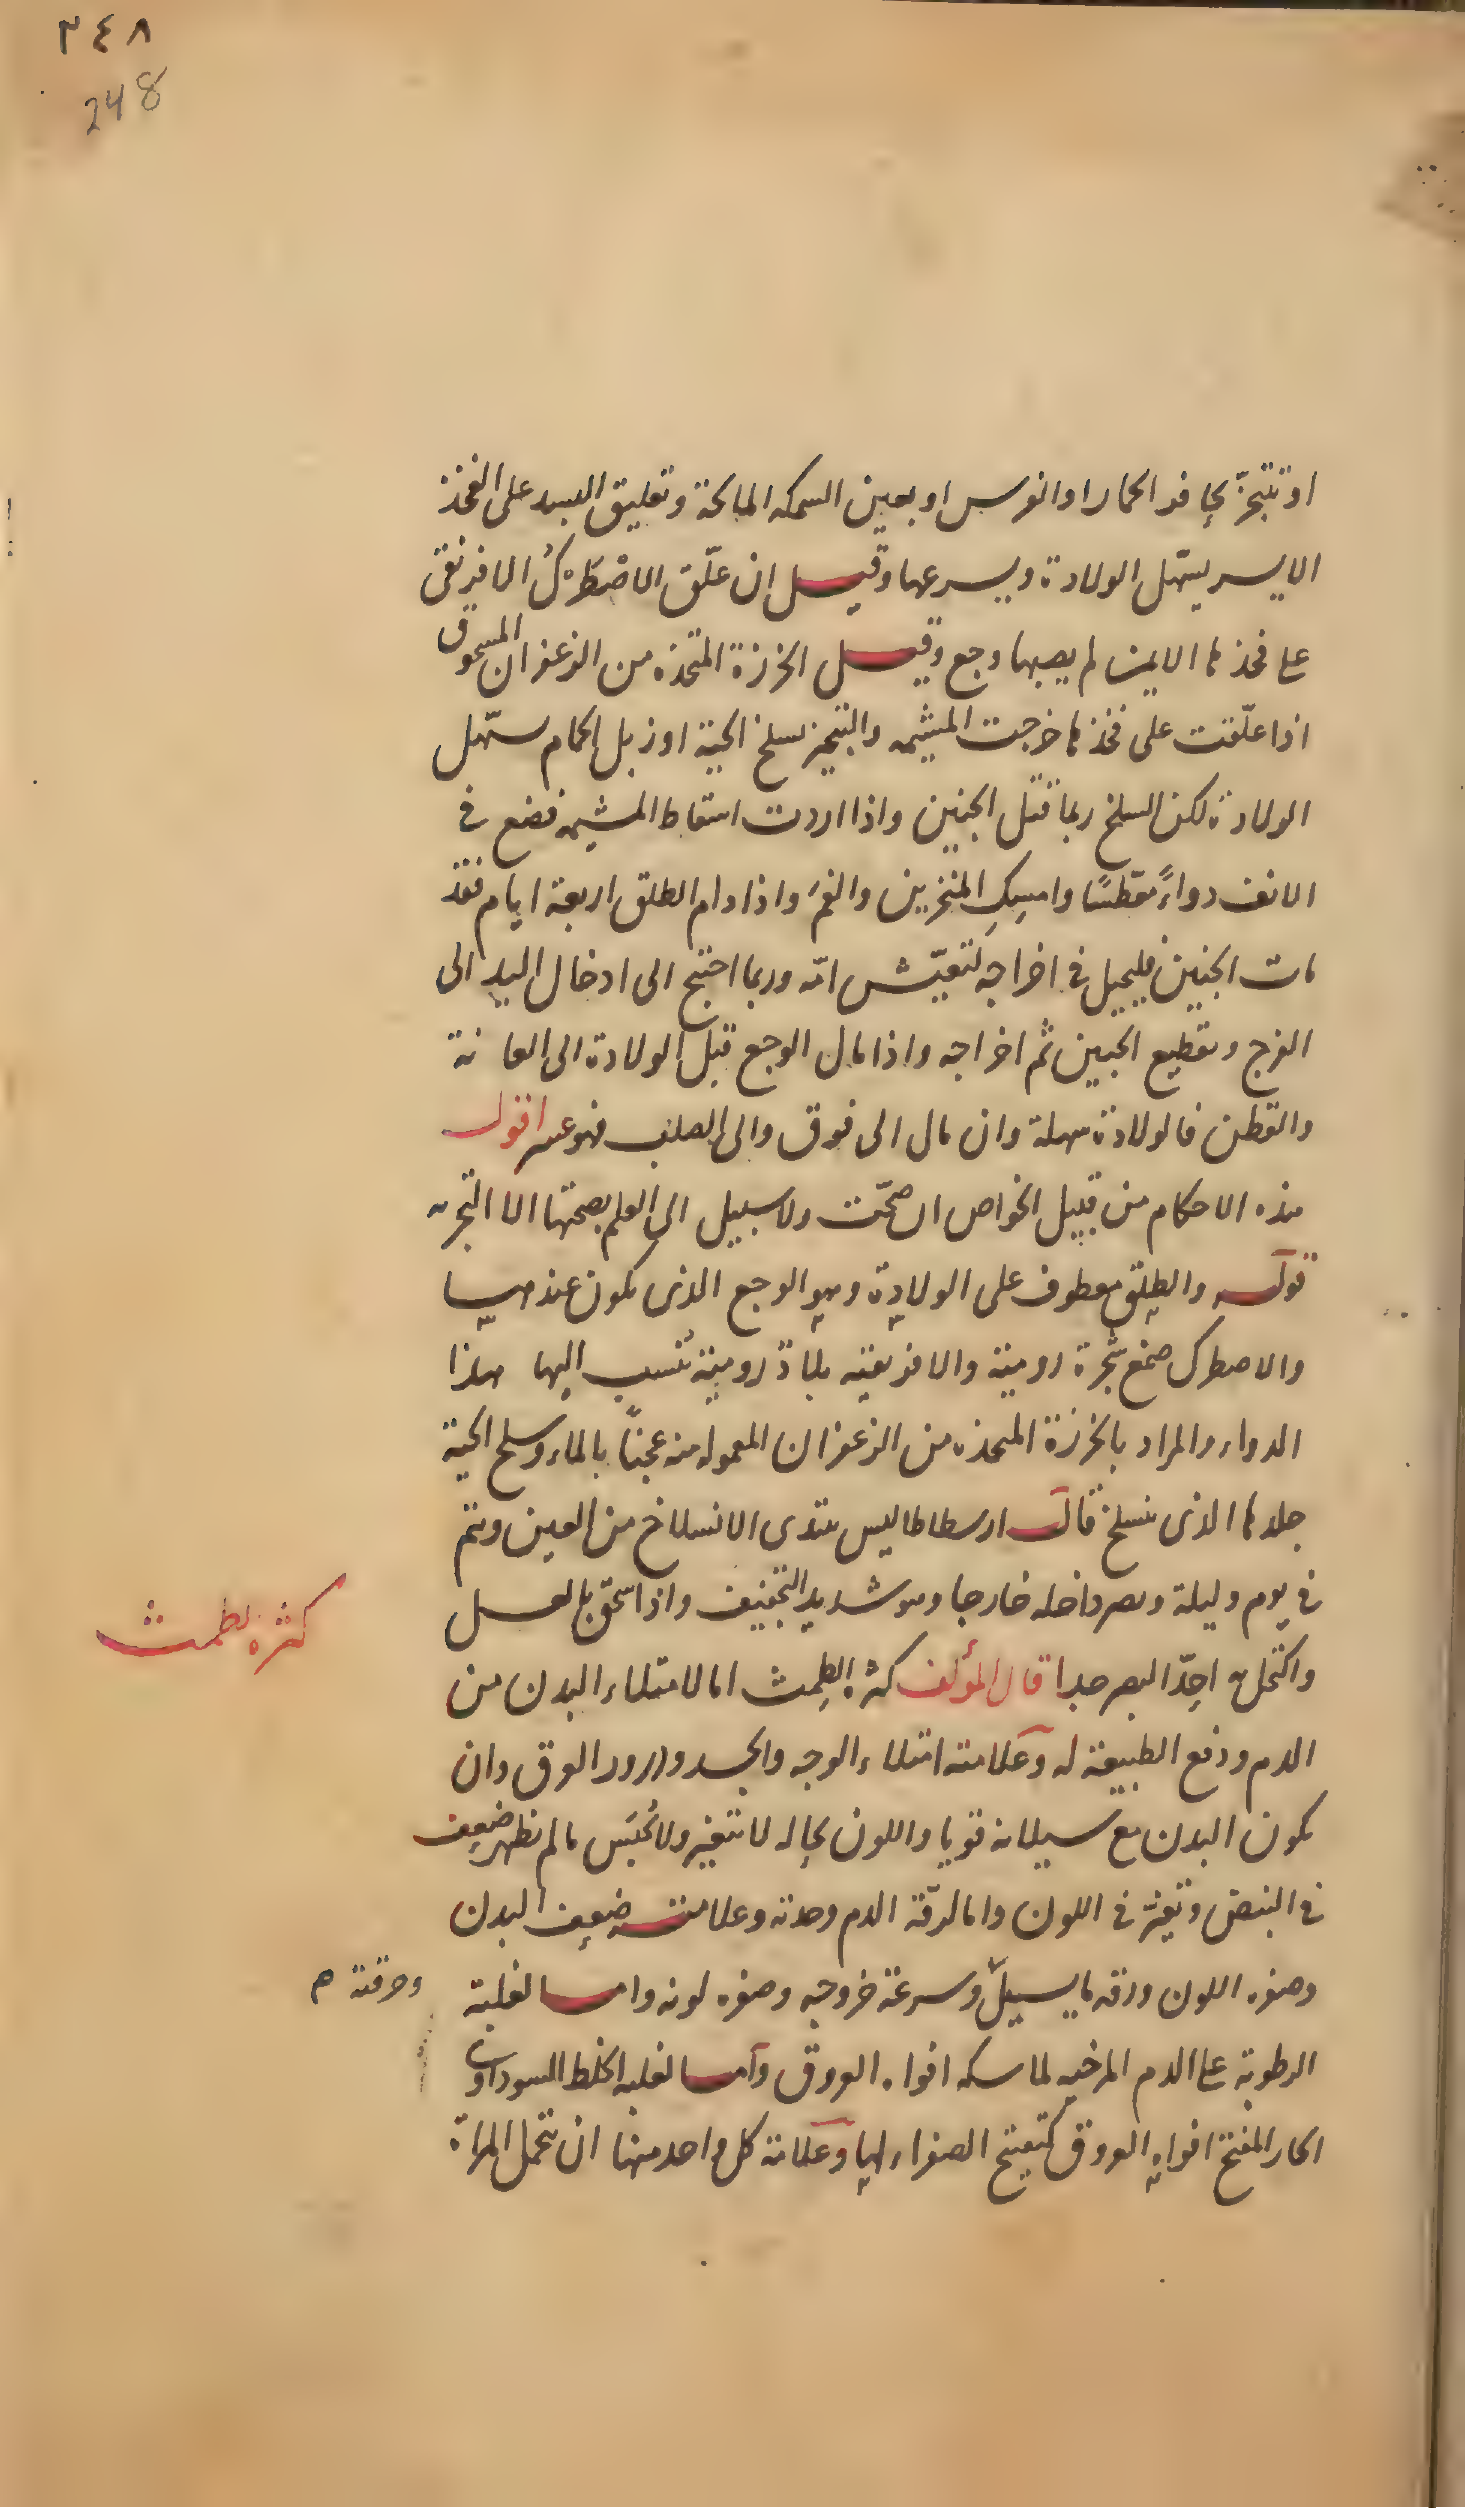 ٢٤٨
248
او تتبخّر بحافر الحمار او الفرس او بعين السمكة المالحة وتعليق البسد على الفخذ
الايسر يسهّل الولادة ويسرعها وقيل ان علّق الاصْطَرْكُ الافريقى
على فخذها الايمن لم يصبها وجع وقيل الخرزة المتخذه من الزعفران المسحوق
اذا علّقت على فخذها خرجت المشيمه والتبخير بسلخ الحية او زبل الحمام سهّل
الولادة لكن السلخ ربما قتل الجنين واذا اردت اسقاط المشيمه فضع فى
الانف دواءً معّطسًا وامسِكِ المنخرين والفمَ واذا دام الطلق اربعة ايام فقد
مات الجنين فليحيل فى اخراجه لتعيّش امّه وربما احتيج الى ادخال اليد الى
الفرج وتقطيع الجنين ثم اخراجه واذا مال الوجع قبل الولادة الى العانة
والقطن فالولادة سهلة وان مال الى فوق والى الصلب فهو عسر اقول
هذه الاحكام من قبيل الخواص ان صحّت ولا سبيل الى العلم بصحتها الا التجربه
قوله والطلق معطوف على الولادة وهو الوجع الذى يكون عندها
والاصطرك صمغ شجرة رومية والافريقيه بلدة رومية يُنسب اليها هذا
الدواء والمراد بالخرزة المتخذه من الزعفران المعموله منه عجنًا بالماء وسلخ الحية
جلدها الذى ينسلخ قال ارسطاطاليس يبتدى الانسلاخ من العين ويتم
فى يوم وليلة ويصير داخله خارجا وهو شديد التجفيف واذا سحق بالعسل
واكتحل به احِدّ البصر جدا قال المؤلف كثرة الطمث اما لامتلاء البدن من
كثرة الطمث
الدم ودفع الطبيعة له وعلامته امتلاء الوجه والجسد ودرور العرق وان
يكون البدن مع سيلانه قويا واللون بحاله لا يتغير ولا يُحبَس مالم يظهر ضعف
فى النبض وتغيّر فى اللون واما لرقّة الدم وحدته وعلامته ضعف البدن
وصفره اللون ورقه ما يسيل وسرعة خروجه وصفره لونه واما لغلبة
وحرقته م
الرطوبة على الدم المرخيه لماسكه افواه العروق واما لغلبه الخلط السوداوى
الحار المفتح افواه العروق كتفتيح الصفراء لها وعلامة كل واحد منها ان تتحمل المراة